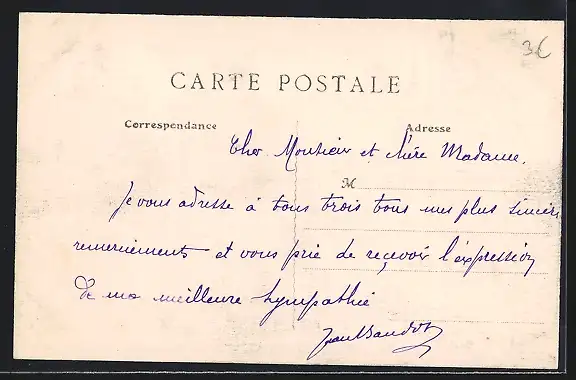 3€
CARTE POSTALE
Correspondance
Adresse
Cher Monsieur et chère Madame.
M
Je vous adresse à tous trois tous mes plus sincères
remerciements et vous prie de recevoir l'expression
de ma meilleure sympathie